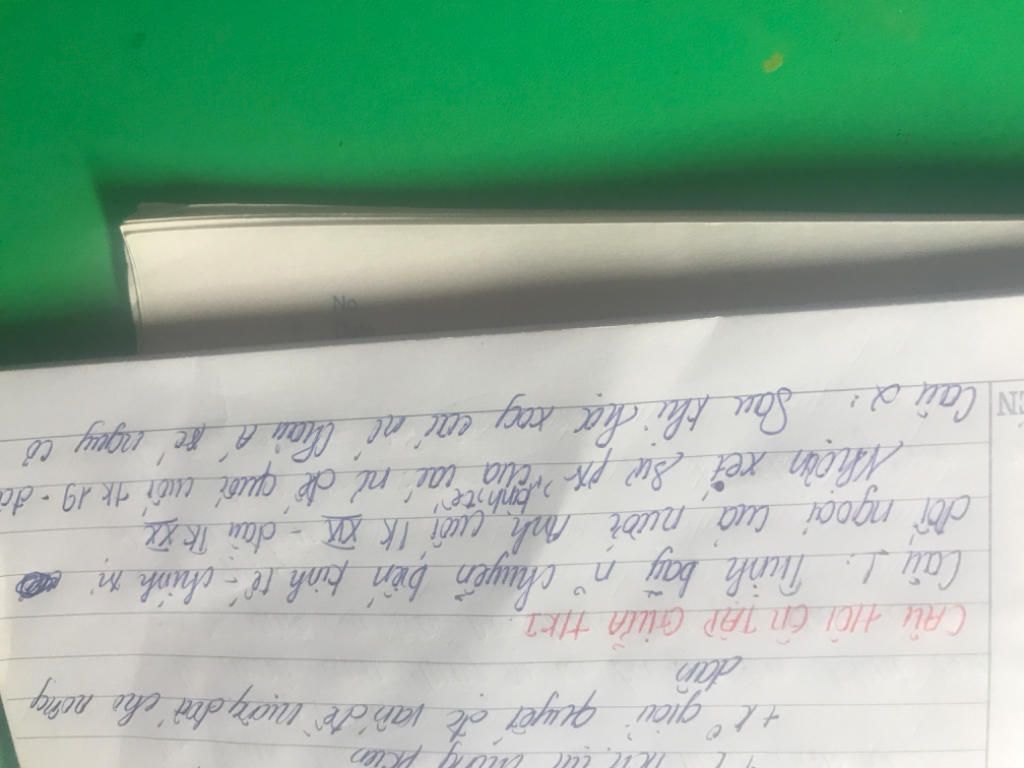 + k° giải quyết đc vấn đề ruộng đất cho nông
dân
CÂU HỎI ÔN TẬP GIỮA HK1
Câu 1: Trình bày n~ chuyển biến kinh tế - chính trị
đối ngoại của nước Anh cuối TK XIX - đầu TK XX
Nhận xét sự ptr kinh tế của các nc đế quốc cuối tk 19 - đầ
Câu 2: Sau khi các nc Châu Á nguy cơ
No.